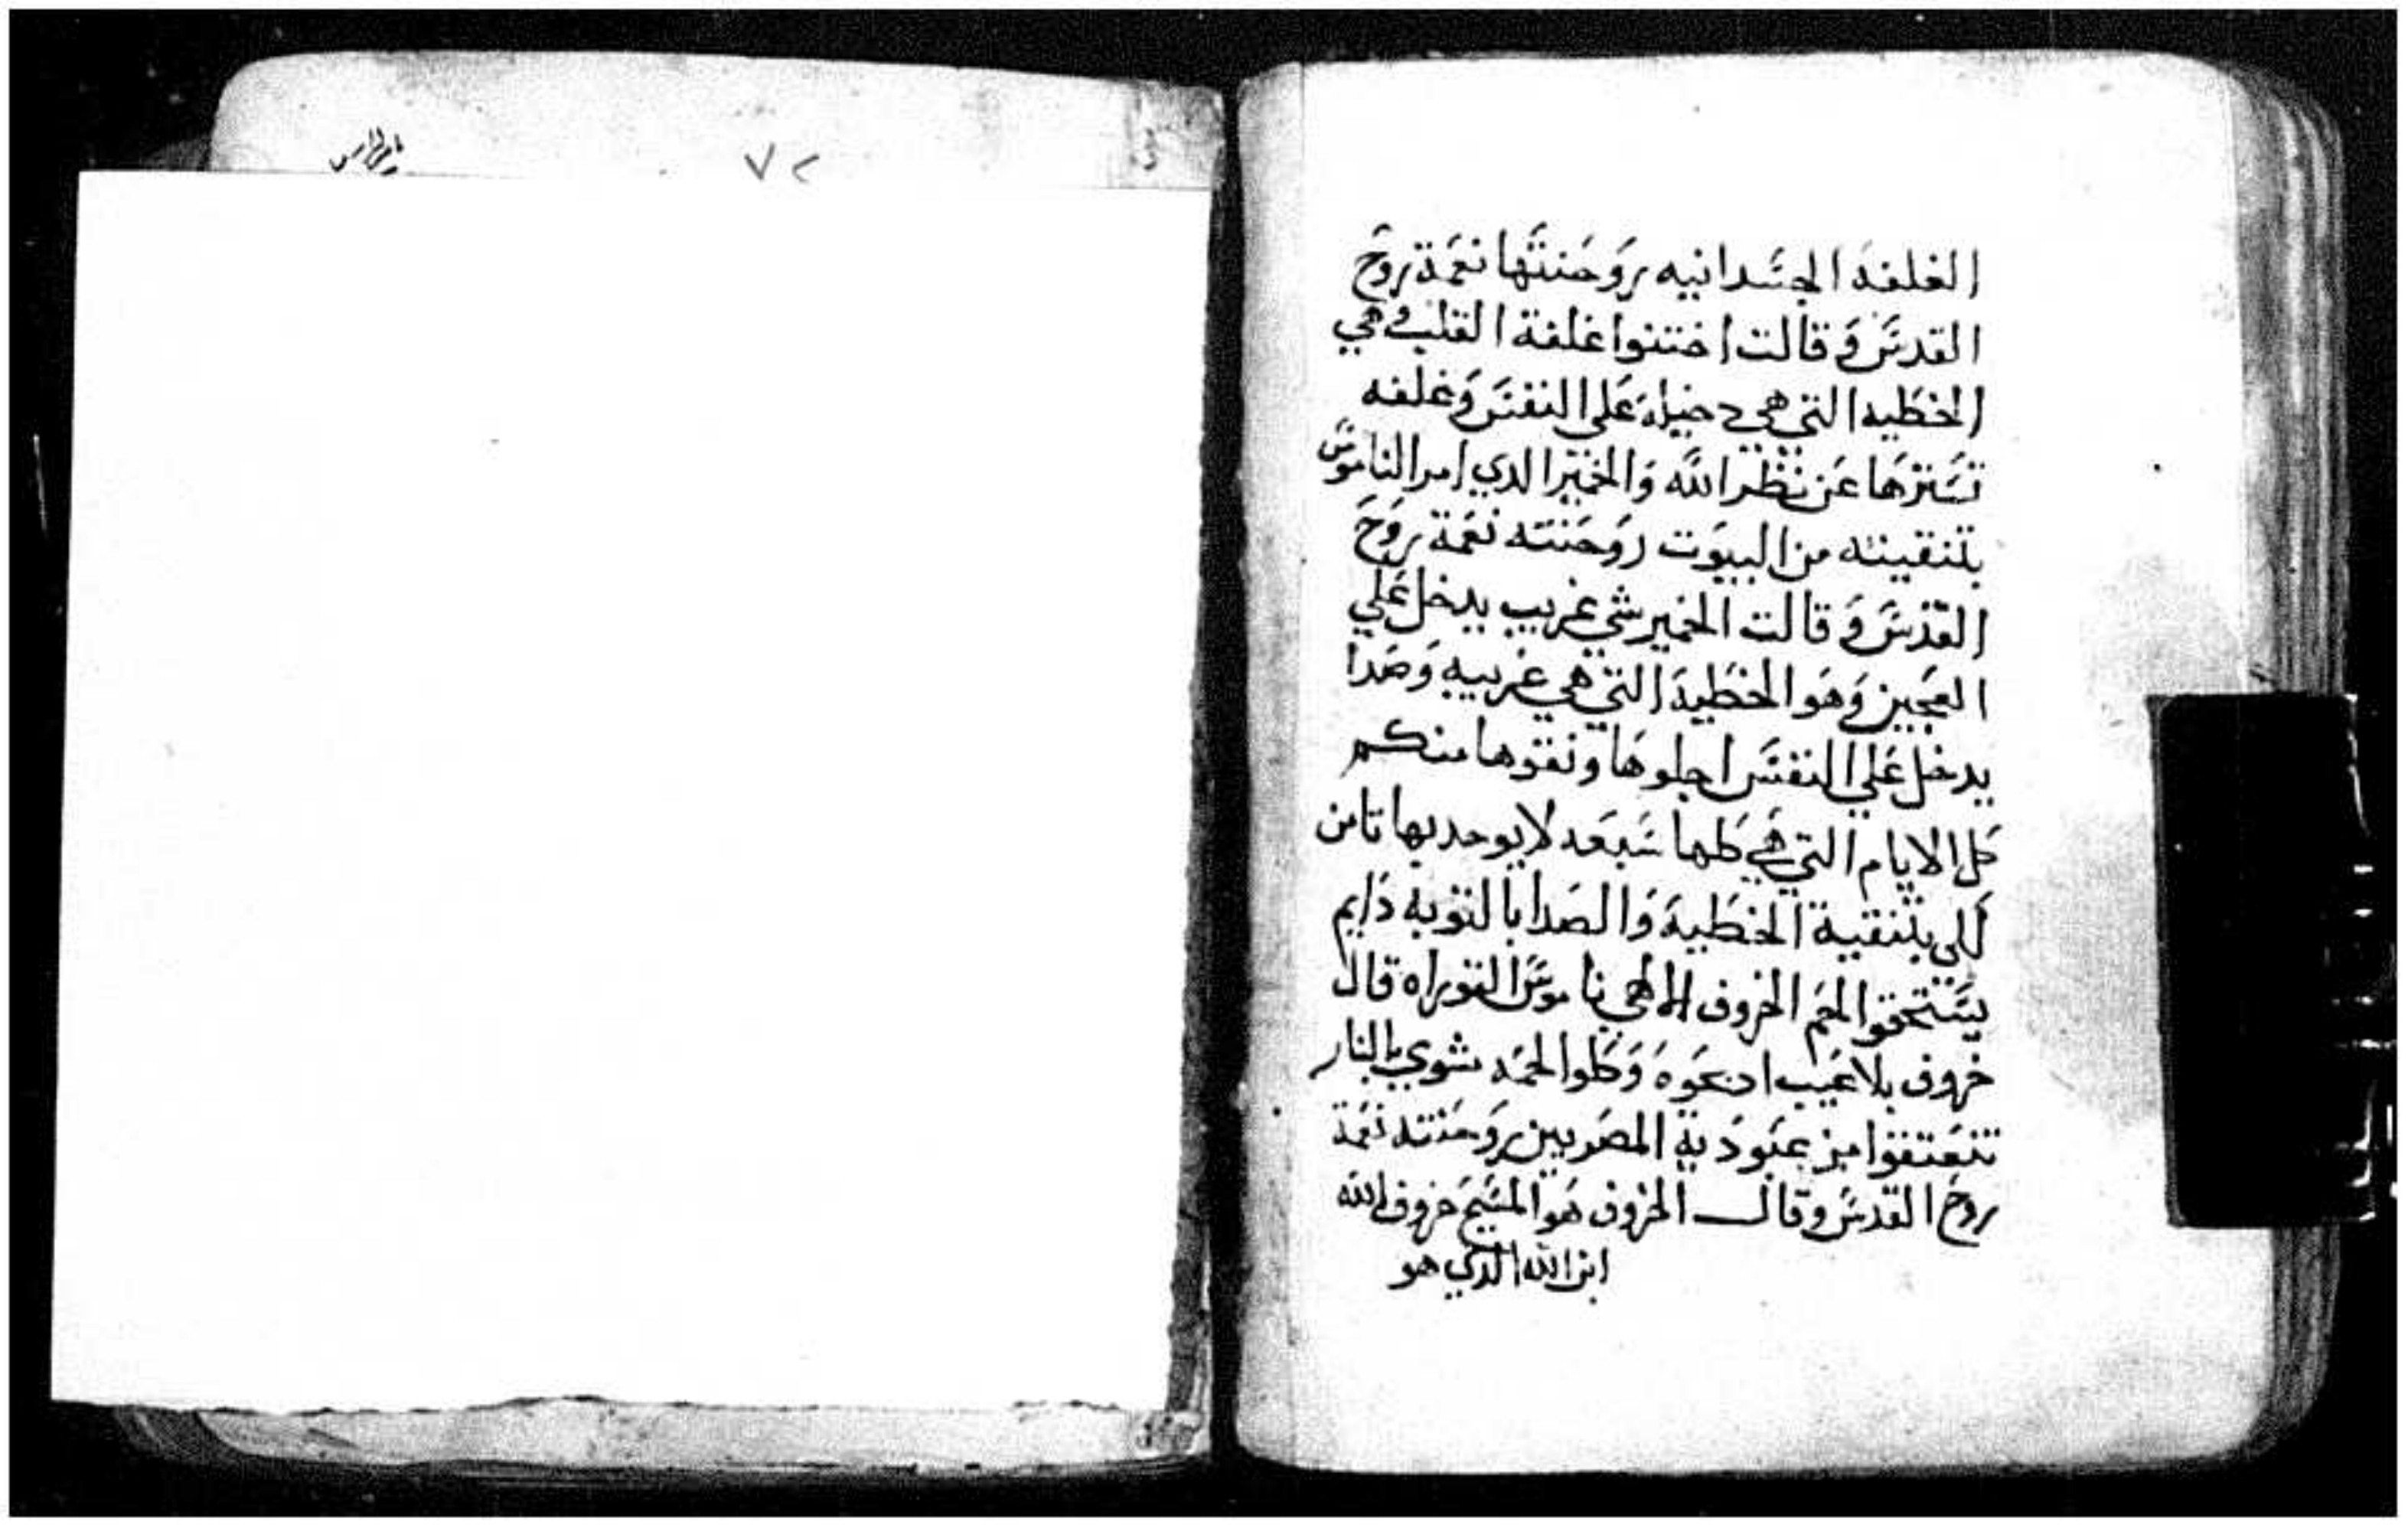 الغلفه الجسدانيه روحنتها نعمة روح
القدس وقالت اختنوا غلفة القلب وهي
الخطيه التي هي دخيله علي النفس وغلفه
تسترها عن نظر الله والخمير الدي امر الناموس
بتنقيته من البيوت روحنته نعمة روح
القدس وقالت الخمير شي غريب يدخل علي
العجين وهو الخطية التي هي غريبه وصدا
يدخل علي النفس اجلوها ونقوها منكم
كل الايام التي هي كلها سبعه لا يوجد بها تامن
لكي بتنقية الخطية والصدا بالتوبه دايم
يستحقوا لحم الخروف الالاهي ناموس التوراه قال
خروف بلا عيب ادبحوه وكلوا لحمه شوي بالنار
تنعتقوا من عبودية المصريين روحنته نعمة
روح القدس وقال الخروف هو المسيح خروف الله
ابن الله الدي هو
٧٢